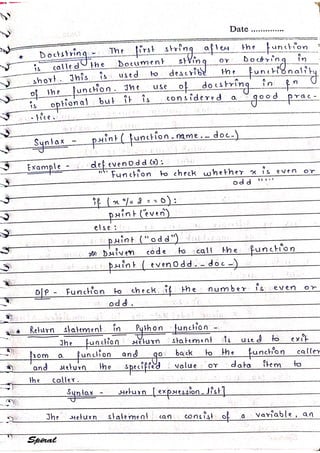 Date ..............
* Docstring - The first string after the function
is called the Document string or Docstring in
short. This is used to describe the functionality
of the function. The use of docstring in fn
is optional but it is considered a good prac-
-tice.
Syntax - print ( function_name.__doc__)
Example - def evenOdd (x):
""" Function to check whether x is even or
odd """
if (x % 2 == 0):
print ("even")
else:
print ("odd")
## Driven code to call the function
print ( evenOdd.__doc__)
O/P - Function to check if the number is even or
odd.
* Return statement in Python function -
The function return statement is used to exit
from a function and go back to the function caller
and return the specified value or data item to
the caller.
Syntax - return [expression_list]
The return statement can consist of a variable, an
Spiral